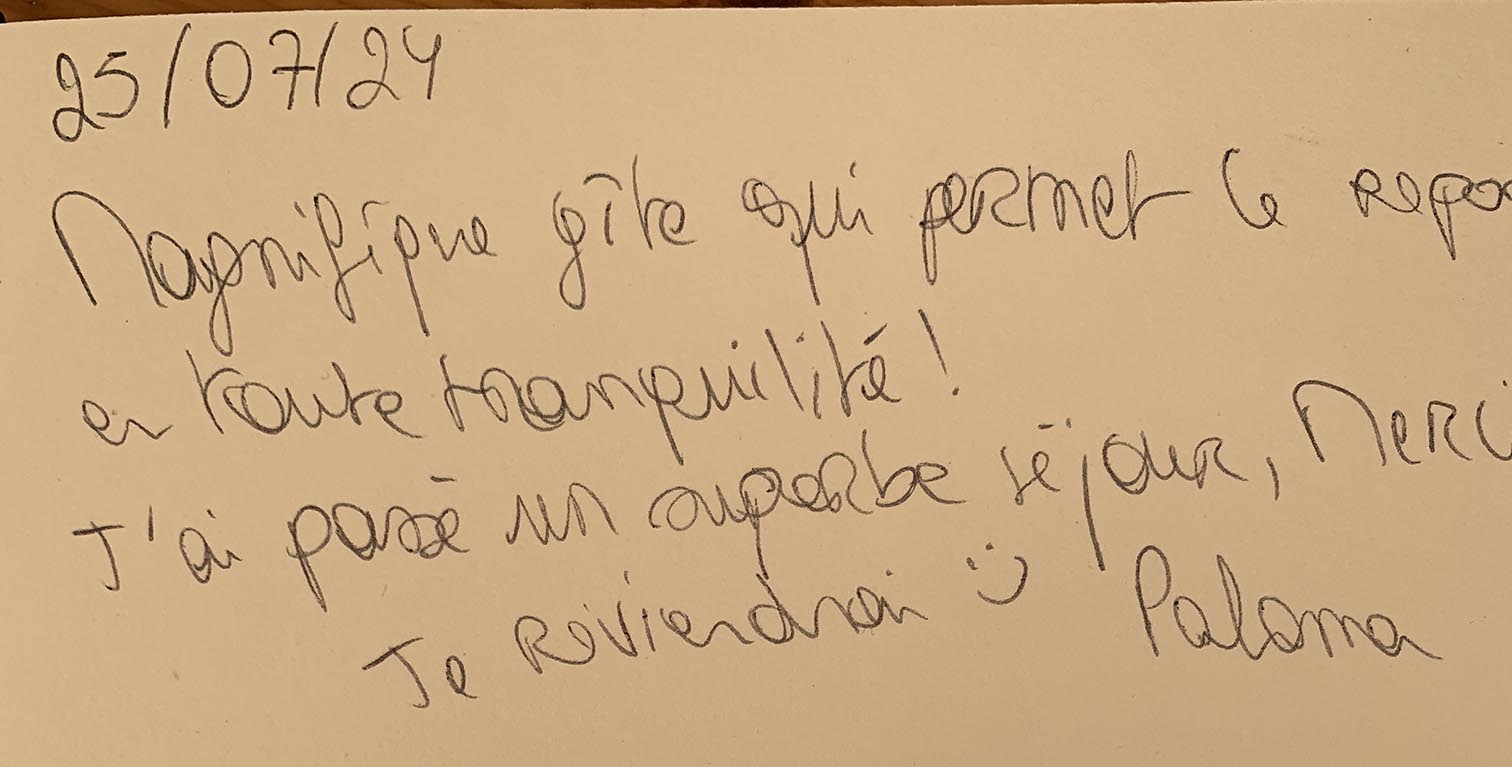 25/07/24
Magnifique gîte qui permet le repo
en toute tranquilité !
J'ai passé un superbe séjour, Merci
Je reviendrai :)
Paloma